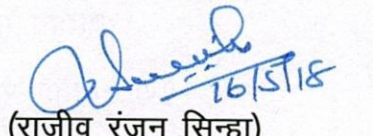 16/5/18
(राजीव रंजन सिन्हा)